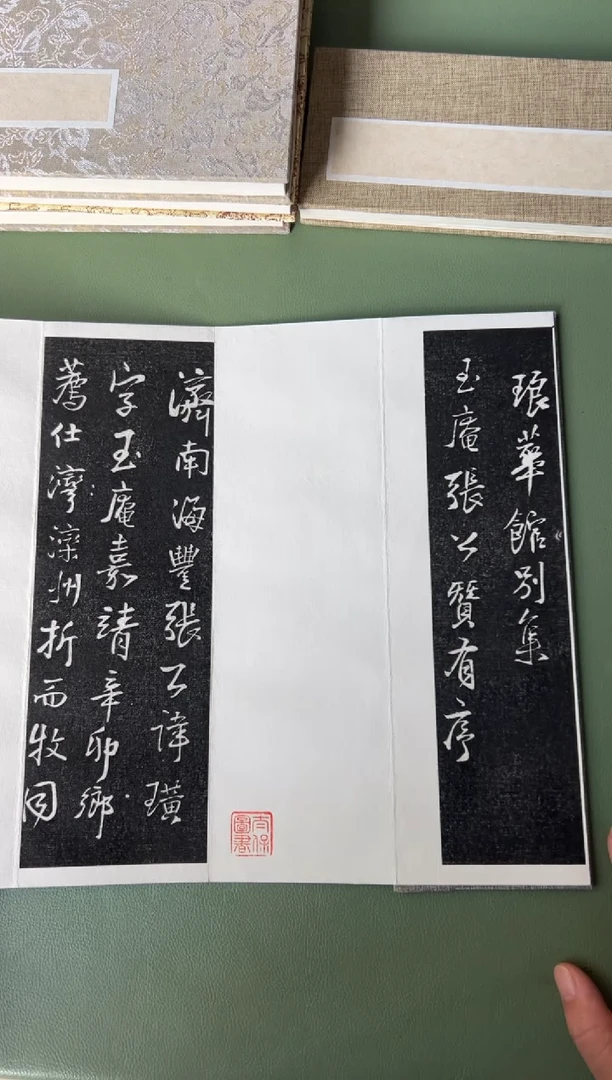 琅華館別集
玉庵張公贊有序
濟南海豐張公諱璜
字玉庵嘉靖辛卯鄉
薦仕濘滦州折而牧同
太保圖書